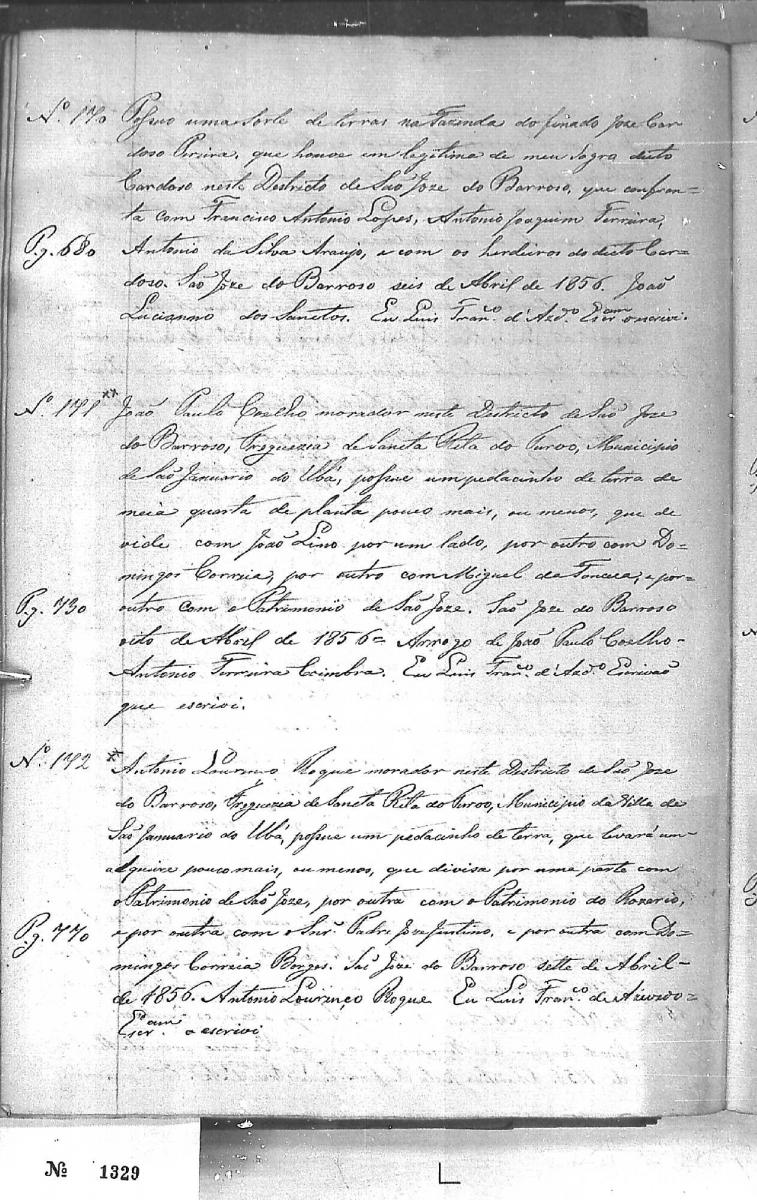 Nº. 170 Possuo uma sorte de terras na Fazenda do finado Joze Car-
doso Pereira, que houve em legitima de meu Sogro dicto
Cardoso neste Districto de São Joze do Barroso, que confron-
ta com Francisco Antonio Lopes, Antonio Joaquim Ferreira,
Pg. 680 Antonio da Silva Araujo, e com os herdeiros do dicto Car-
doso. São Joze do Barroso seis de Abril de 1856. João
Lucianno dos Sanctos. Eu Luis Franº. d'Azdº. Escram o escrivi.
Nº. 171 ** João Paulo Coelho morador neste Districto de São Joze
do Barroso, Freguezia de Sancta Rita do Turvo, Municipio
de São Januario do Ubá, possue um pedacinho de terra de
meia quarta de planta pouco mais, ou menos, que de
vide com João Lino por um lado, por outro com Do-
mingos Correia, por outro com Miguel da Fonceca, e por-
Pg. 730 outro com o Patrimonio de São Joze. São Joze do Barroso
oito de Abril de 1856= Arrogo de João Paulo Coelho-
Antonio Ferreira Coimbra. Eu Luis Franº. d'Azdº. Escrivão
que escrivi.
Nº. 172 * Antonio Lourenço Roque morador neste Districto de São Joze
do Barroso, Freguezia de Sancta Rita do Turvo, Municipio da Villa de
São Januario do Ubá, possue um pedacinho de terra, que levará um
alqueire pouco mais, ou menos, que divisa por uma parte com
o Patrimonio de São Joze, por outra com o Patrimonio do Rozario,
Pg. 770 e por outra com o Snr. Padre Joze Justino, e por outra com Do-
mingos Correia Borges. São Joze do Barroso sette de Abril-
de 1856. Antonio Lourenço Roque Eu Luis Franº. de Azevedo=
Escram. o escrivi
Nº 1329